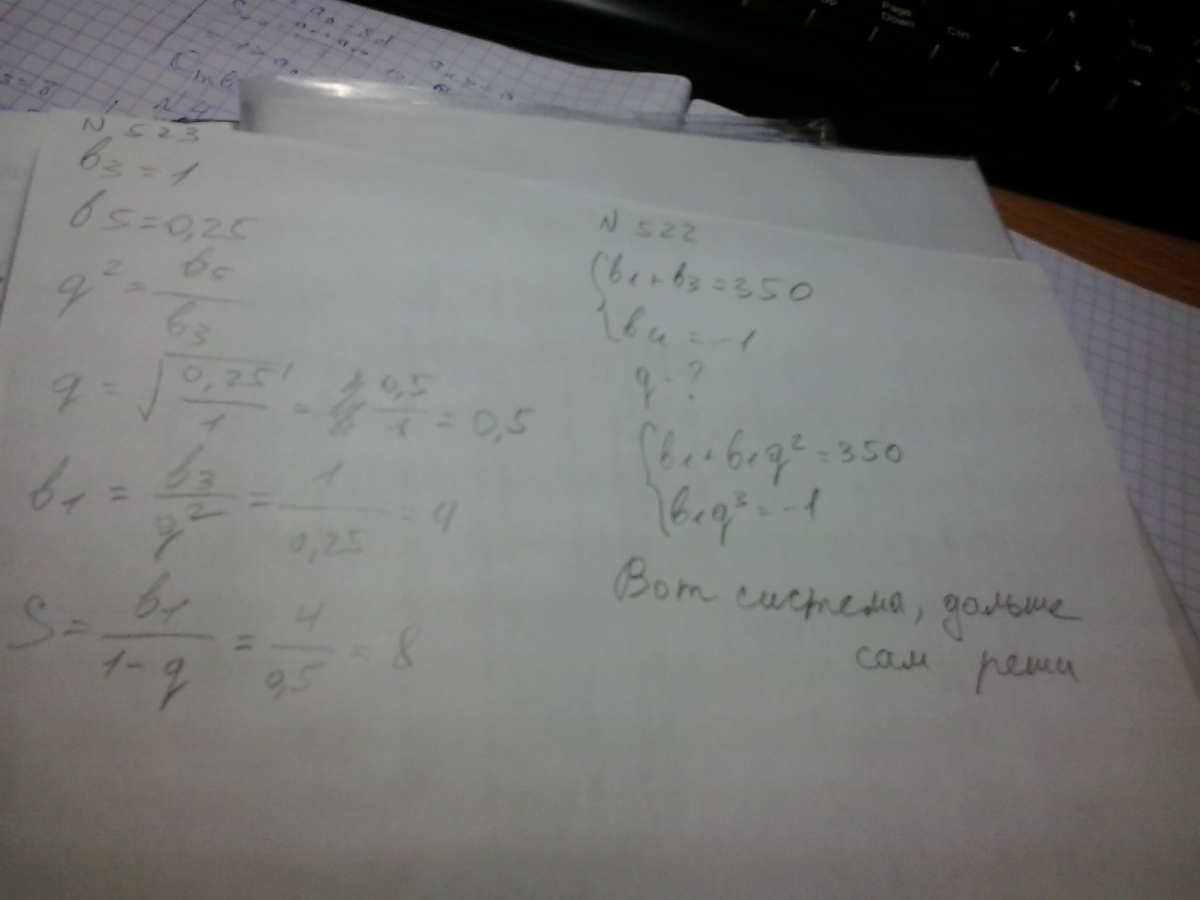 N 523
b3 = 1
b5 = 0,25
q² = b5/b3
q = √(0,25/1) = 0,5/1 = 0,5
b1 = b3/q² = 1/0,25 = 4
S = b1/1-q = 4/0,5 = 8
N 522
{b1 + b3 = 350
{b4 = -1
q - ?
{b1 + b1q² = 350
{b1q³ = -1
Вот система, дальше
сам реши
Page
Down
Ctrl
End